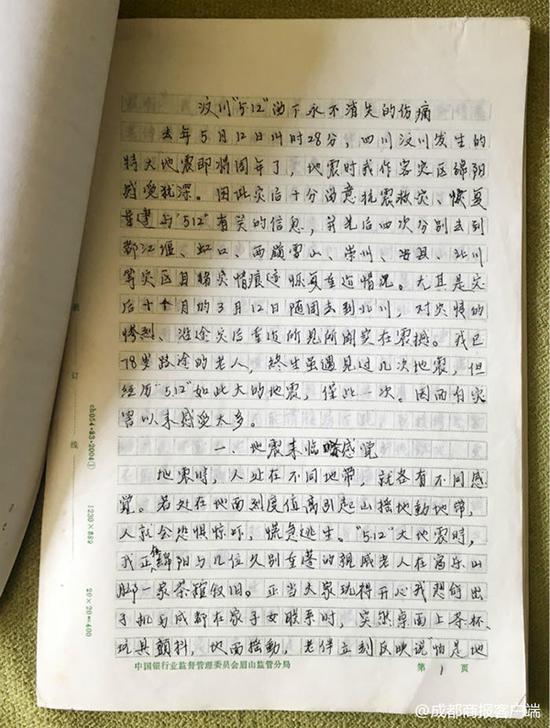 汶川"5.12"留下永不消失的伤痛
去年5月12日14时28分，四川汶川发生的
特大地震即将周年了，地震时我作客灾区绵阳
感受犹深。因此灾后十分留意抗震救灾、恢复
重建与"5.12"有关的信息，并先后四次分别去到
都江堰、虹口、西岭雪山、崇州、安县、北川
等灾区目睹灾情痕迹恢复重造情况。尤其是灾
后十个月的3月12日随团去到北川，对灾情的
惨烈、沿途灾后重造所见所闻实在震撼。我已
78岁路途的老人，终生虽遇见过几次地震，但
经历"5.12"如此大的地震，仅此一次。因而自灾
害以来感受太多。
一、地震来临感觉
地震时，人处在不同地带，就各有不同感
觉。若处在地面烈度值高引起山摇地动地带，
人就会恐惧惊吓，慌急逃生。"5.12"大地震时，
我正作绵阳与几位久别重逢的亲戚老人在富乐山
脚一家茶馆叙旧。正当大家玩得开心我想掏出
手机与成都在家子女联系时，突然桌面上茶杯、
玩具颤抖，地面摇动，老伴立刻反映说怕是地
中国银行业监督管理委员会眉山监管分局
第 1 页
装 订 线
ch054·83·2004①
1230×889
20×20=400
@成都商报客户端